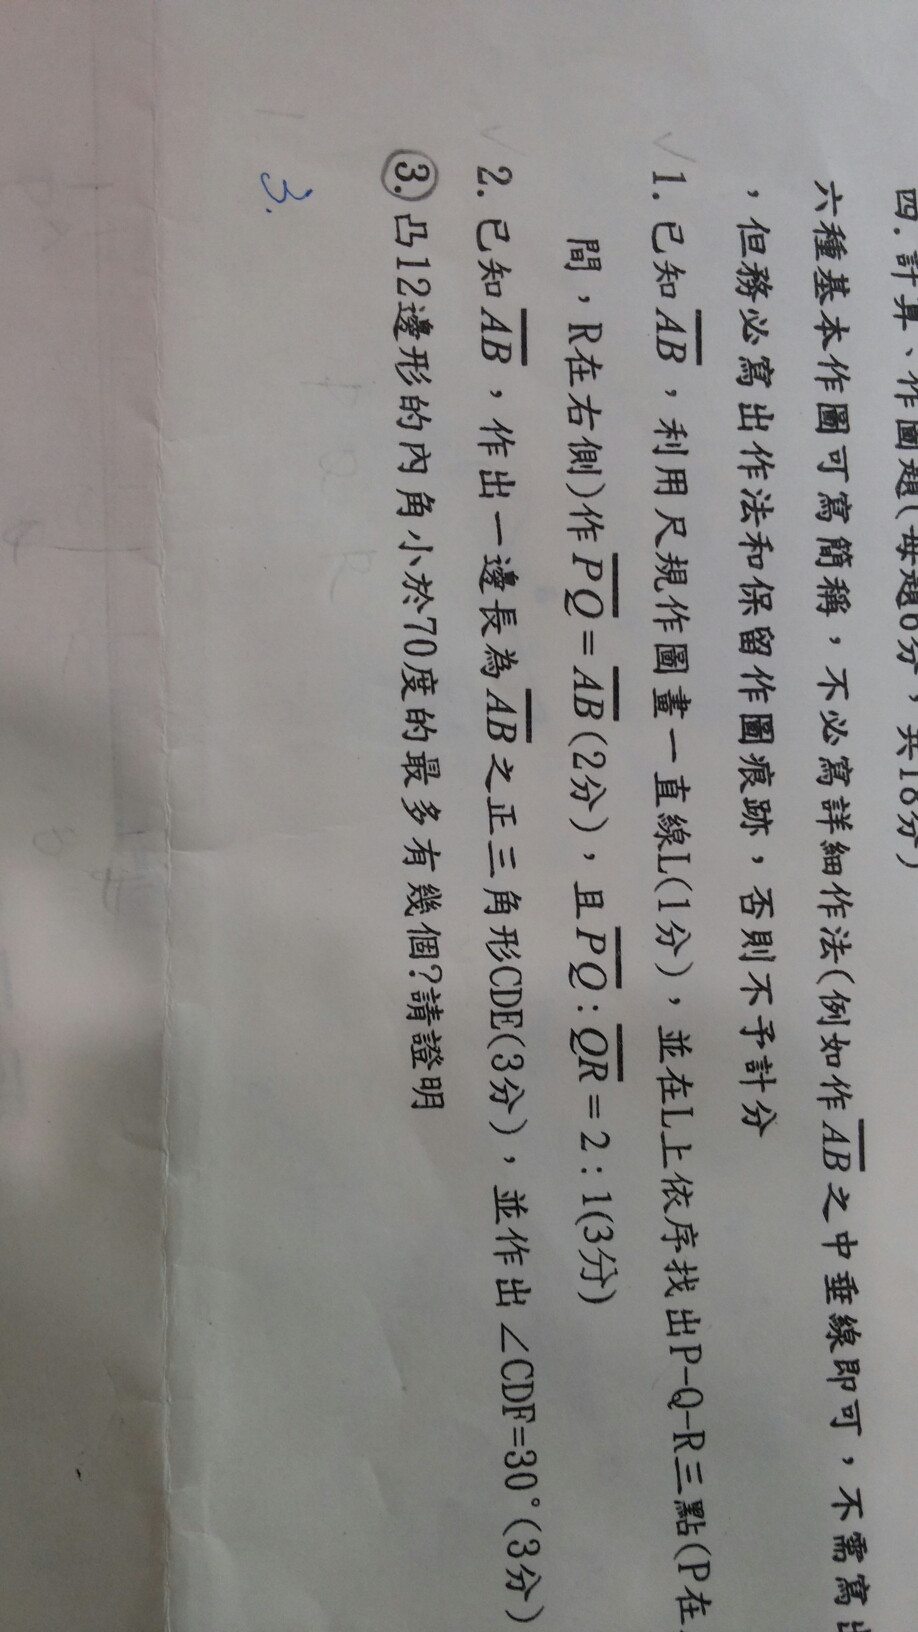 四.計算、作圖題(每題6分，共18分)
六種基本作圖可寫簡稱，不必寫詳細作法(例如作AB之中垂線即可，不需寫出
，但務必寫出作法和保留作圖痕跡，否則不予計分
1.已知AB，利用尺規作圖畫一直線L(1分)，並在L上依序找出P-Q-R三點(P在
間，R在右側)作PQ=AB(2分)，且PQ:QR=2:1(3分)
2.已知AB，作出一邊長為AB之正三角形CDE(3分)，並作出∠CDF=30°(3分)
3.凸12邊形的內角小於70度的最多有幾個?請證明
3.
P Q R